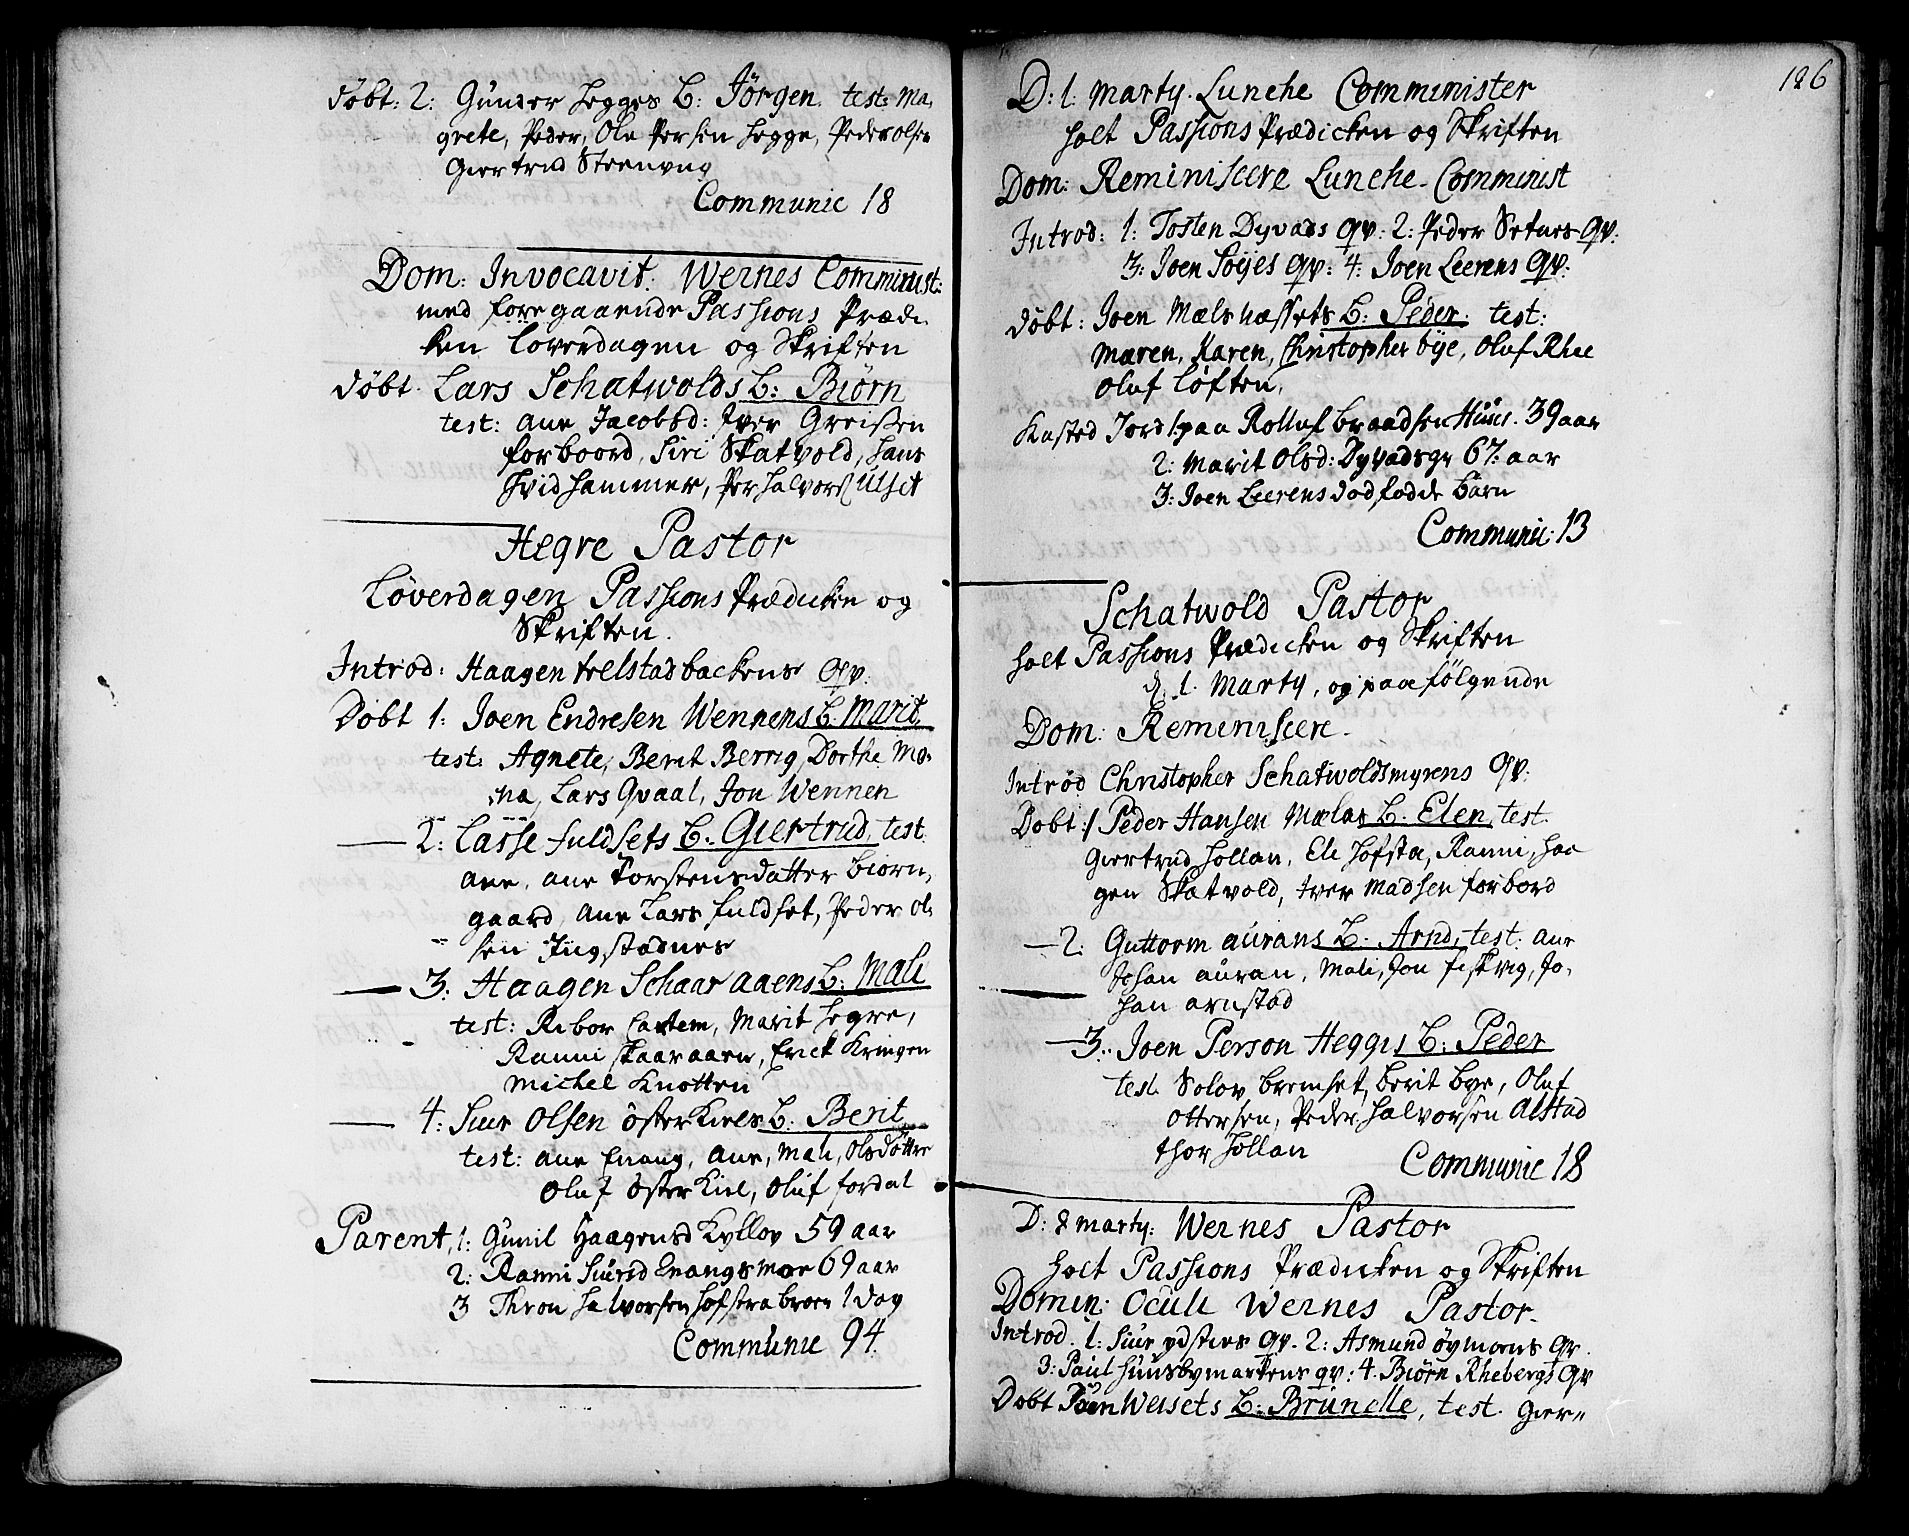 døbt: 2: Gunder Hegges B: Jörgen. test: Ma,
grete, Peder, Ole Persen Hegge, Peder olsen
Giertrud Steenvug
Communic 18
Dom: Invocavit. Wernes Comminist:
med foregaaende Passions Præde
ken Løverdagen og Skriften
døbt. Lars Schatwolds B: Biörn
test: Ane Jacobsd: Iver Greissen
forboord, Siri Skatvold, Hans
Hvidhammer, Per Halvors Ulset
Hegre Pastor
Løverdagen Passions Prædicken og
Skriften.
Introd: Haagen trelstadbackens qv:
Døbt 1: Joen Endresen Wennens B. Marit
test: Agnete, Berit Berrig, Dorthe Mo,
na, Lars Qvaal, Jon Wennen
— 2: Lasse fuldsets B: Giertrud, test
Ane, Ane Torstensdatter biorn,
gaard, Ane Lars fuldset, Peder ol,
sen Ingstadnes
— 3: Haagen Schaaraaens B: Mali
test: Rebor Cartem, Marit Hegre,
Ranni Skaaraaen, Erick Kringen
Michel Knotten
— 4: Siur Olsen österKiels B: Berit
test: Ane Enang, Ane, Mali, Olsdøttre
Oluf österKiel, Oluf fordal
Parent, 1: Gunil Haagensd Kyllov 59 aar
2: Ranni Siursd Enangsmoe 69 aar
3 Thron Halvorsen Hofstrabroen 1 dag
Communic 94.
126
D: 1. Marty. Lunche Comminister
holt Passions Prædicken og Skriften
Dom: Reminiscere Lunche Comminist
Introd: 1: Tosten Dyvads qv: 2: Peder Setnes qv:
3: Joen Soijes qv: 4: Joen Leerens qv:
døbt: Joen Mælsnæssets B: Peder. test:
Maren, Karen, Christopher bye, Oluf Rhee
Oluf Løften.
Kasted Jord 1. paa Rolluf brandsen Huus. 39 aar
2: Marit Olsd: Dyvadsgr 67: aar
3: Joen Leerens dødfødde barn
Communic: 13
Schatwold Pastor
holt Passions Prædicken og Skriften
d. 1. Marty, og paa følgende
Dom: Reminiscere.
Introd Christopher Schatwoldsmyrens qv:
Døbt: 1 Peder Hansen Mælas B. Elen, test.
Giertrud Hollan, Eli Hofsta, Ranni, Haa
gen Skatvold, Iver Madsen forbord
— 2: Guttorm aurans B. Arnd, test: Ane
Johan auran, Mali, Jon fiskvig, Jo,
han arnstad
— 3: Joen Person Hegges B: Peder
test. Solov bremset, berit bye, Oluf
ottersen, Peder Halvorsen Alstad
Thor Hollan
Communic 18
D: 8 marty: Wernes Pastor
holt Passions Prædicken og Skriften
Domin: Oculi Wernes Pastor.
Introd. 1: Siur ydsties qv. 2: Asmund øymoens qv.
3: Paul Huusbymarkens qv: 4. Biörn Rhebergs qv
Døbt Joen Weisets B: Brunelle, test. Gier„